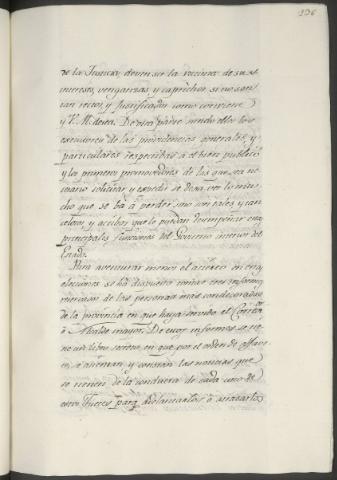 136
de la Justicia, deven ser la victima de sus
intereses, venganzas, y caprichos si no son
tan rectos, y justificados como conviene
y V. M. desea. De otra parte siendo ellos los
executores de las providencias generales, y
particulares respectibas á el bien publico
y los primeros promovedores de las que sea ne
cesario solicitar y expedir se deja ver lo mu
cho que se bá á perder, sino son tales y tan
celosos, y activos que le puedan desempeñar en
principales funciones del Govierno interior del
Estado.
Para aventurar menos el acierto en
elecciones se há dispuesto tomar tres informes
reservados de las personas mas condecoradas
de la provincia en que haya servido el Corregor.
ó Alcalde mayor. De cuyos informes se
no un libro secreto, en que por el orden de
se asientan y constan las noticias que
se tienen de la conducta de cada uno de
estos Jueces para adelantarlos ó atrasarlos